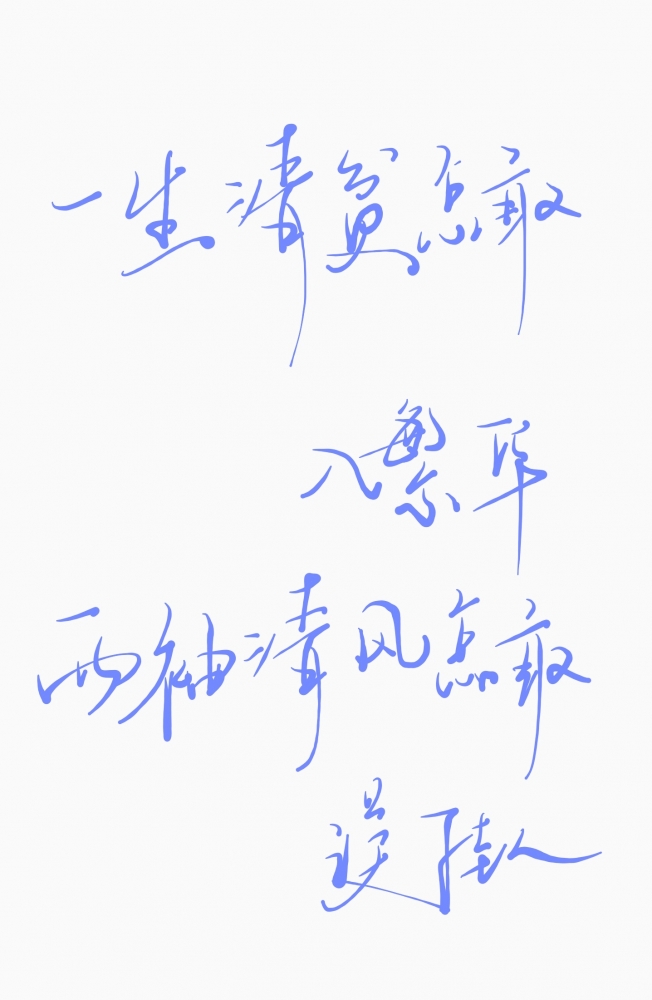 一生清贫怎敢
入繁华
两袖清风怎敢
误佳人